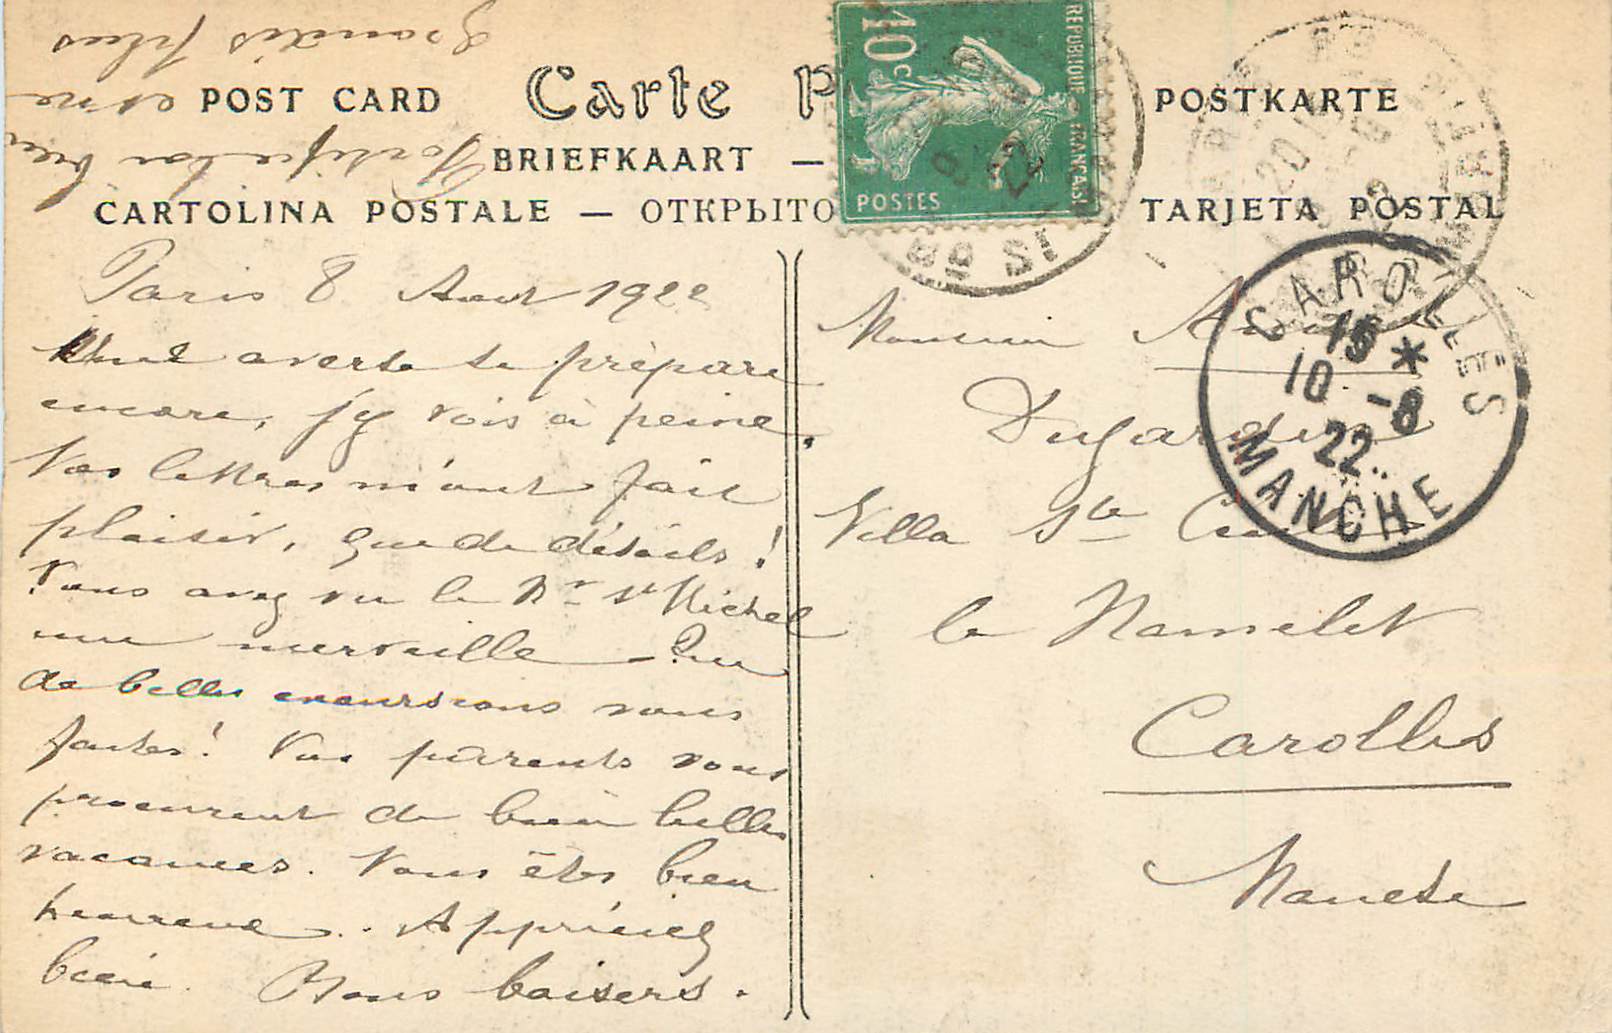 POST CARD Carte P POSTKARTE
BRIEFKAART —
CARTOLINA POSTALE — ОТКРЫТО TARJETA POSTAL
10c
REPUBLIQUE FRANÇAISE
POSTES
CAROLLES
15 *
10 -8
22
MANCHE
Paris 8 Aout 1922
averse se prépare
encore, j'y vois à peine.
Vos lettres m'ont fait
plaisir, que de détails !
Vous avez vu le Mt St Michel
une merveille – Que
de belles excursions vous
faites ! Vos parents vous
procurent de bien belles
vacances. Vous êtes bien
heureux. Appréciez
bien. Bons baisers.
Fortifie ton
grandis plus
Monsieur
Dujardin
Villa Ste
le
Carolles
Manche